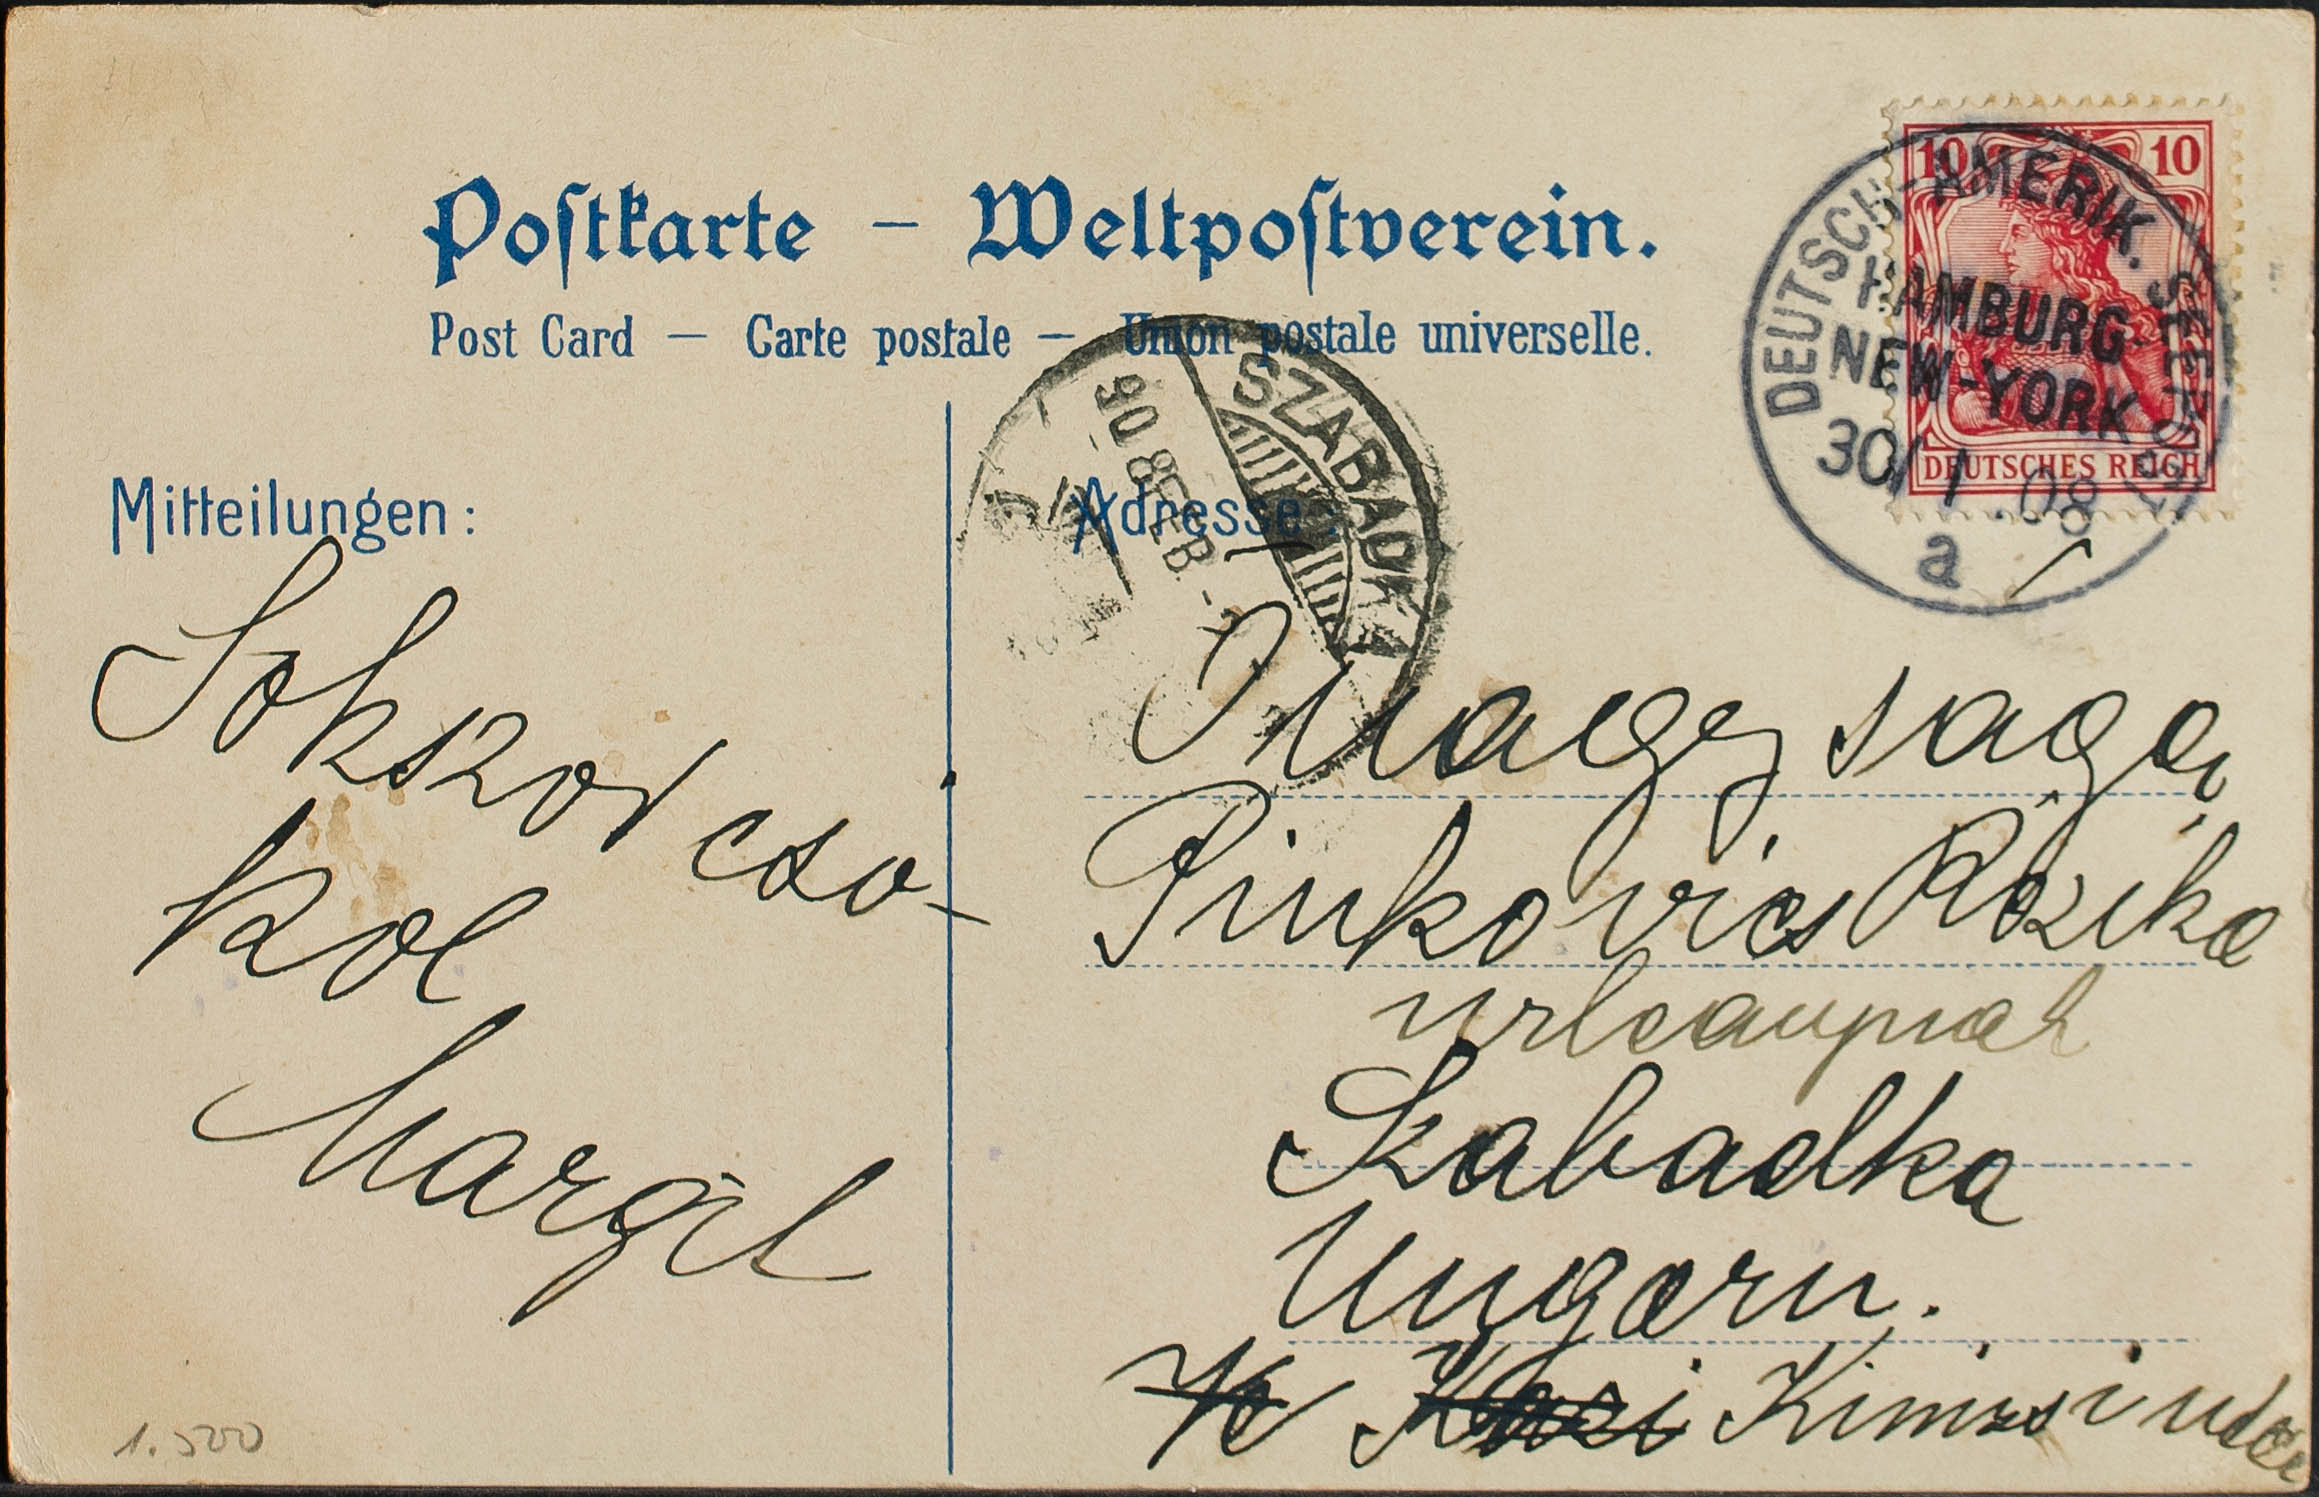 Postkarte – Weltpostverein.
Post Card – Carte postale – Union postale universelle.
10 10
DEUTSCHES REICH
DEUTSCH-AMERIK. SEEPOST
HAMBURG-
NEW-YORK
30/1 .08
a
SZABADKA
908 FEB.
Mitteilungen:
Adresse:
Sokszor cso-
kol
Margit
Nagysága
Pinkovics Rózika
urleanynak
Szabadka
Ungarn.
Kinizsi utca
1.500